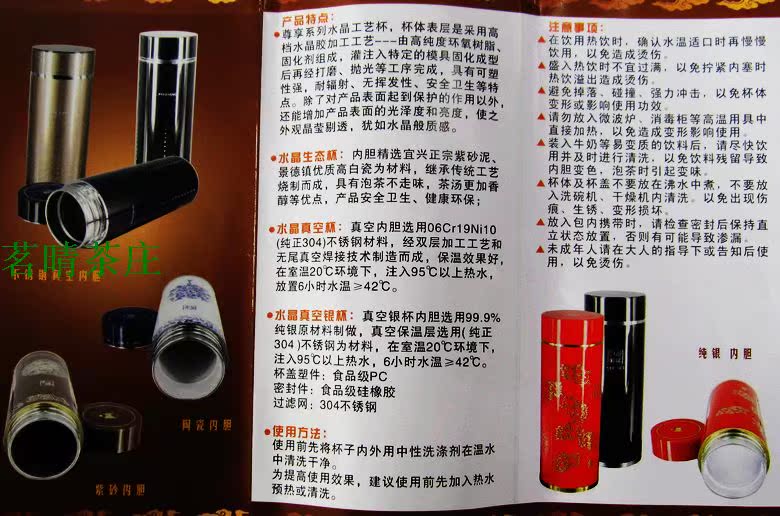 茗晴茶庄
不锈钢真空内胆
陶瓷内胆
紫砂内胆
产品特点：
●尊享系列水晶工艺杯，杯体表层是采用高
档水晶胶加工工艺---由高纯度环氧树脂、
固化剂组成，灌注入特定的模具固化成型
后再经打磨、抛光等工序完成，具有可塑
性强，耐辐射、无挥发性、安全卫生等特
点。除了对产品表面起到保护的作用以外，
还能增加产品表面的光泽度和亮度，使之
外观晶莹剔透，犹如水晶般质感。
●水晶生态杯：内胆精选宜兴正宗紫砂泥、
景德镇优质高白瓷为材料，继承传统工艺
烧制而成，具有泡茶不走味，茶汤更加香
醇等优点，产品安全卫生、健康环保；
●水晶真空杯：真空内胆选用06Cr19Ni10
(纯正304)不锈钢材料，经双层加工工艺和
无尾真空焊接技术制造而成，保温效果好，
在室温20℃环境下，注入95℃以上热水，
放置6小时水温≥42℃。
●水晶真空银杯：真空银杯内胆选用99.9%
纯银原材料制做，真空保温层选用(纯正
304)不锈钢为材料，在室温20℃环境下，
注入95℃以上热水，6小时水温≥42℃。
杯盖塑件：食品级PC
密封件：食品级硅橡胶
过滤网：304不锈钢
●使用方法：
使用前先将杯子内外用中性洗涤剂在温水
中清洗干净。
为提高使用效果，建议使用前先加入热水
预热或清洗。
注意事项：
▲在饮用热饮时，确认水温适口时再慢慢
饮用，以免造成烫伤。
▲盛入热饮时不宜过满，以免拧紧内塞时
热饮溢出造成烫伤。
▲避免掉落、碰撞、强力冲击，以免杯体
变形或影响使用功效。
▲请勿放入微波炉、消毒柜等高温用具中
直接加热，以免造成变形影响使用。
▲装入牛奶等易变质的饮料后，请尽快饮
用并及时进行清洗，以免饮料残留导致
内胆变色，泡茶时引起变味。
▲杯体及杯盖不要放在沸水中煮，不要放
入洗碗机、干燥机内清洗。以免出现伤
痕、生锈、变形损坏。
▲放入包内携带时，请检查密封后保持直
立状态放置，否则有可能导致渗漏。
▲未成年人请在大人的指导下或告知后使
用，以免烫伤。
纯银内胆